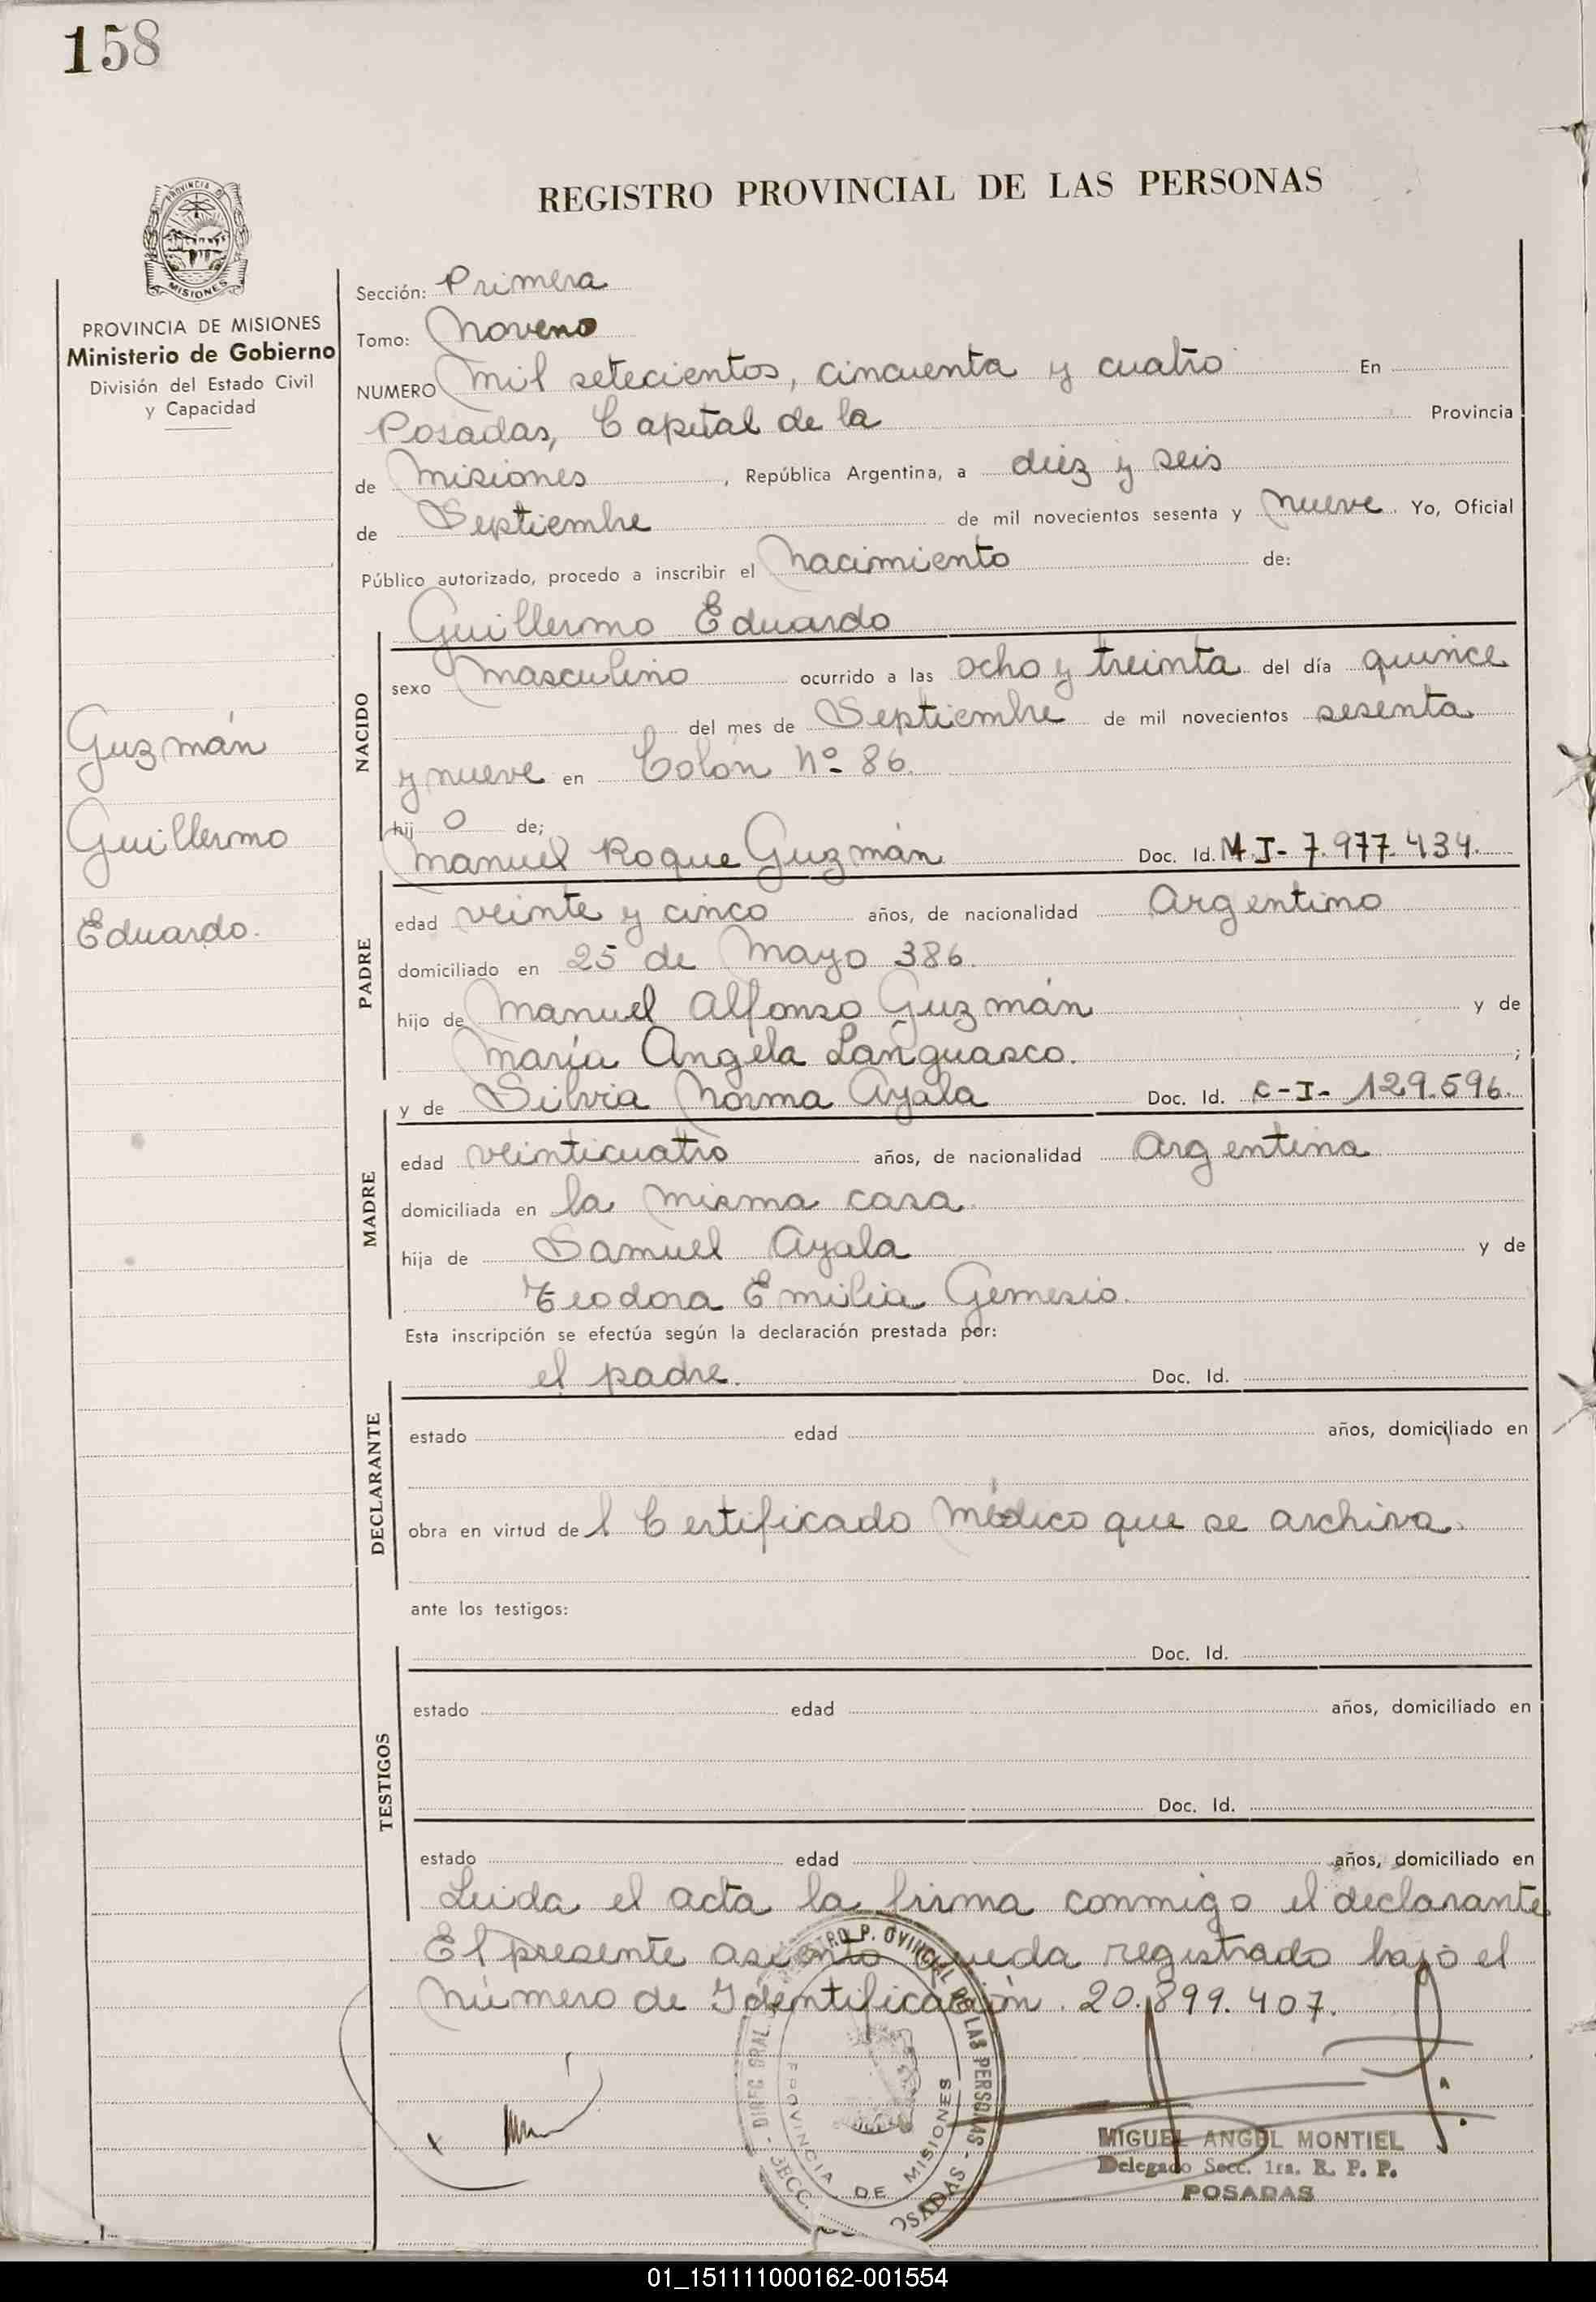 158
REGISTRO PROVINCIAL DE LAS PERSONAS
PROVINCIA DE MISIONES
Ministerio de Gobierno
División del Estado Civil
y Capacidad
Guzmán
Guillermo
Eduardo.
Sección: Primera
Tomo: Noveno
NUMERO Mil setecientos, cincuenta y cuatro En
Posadas, Capital de la Provincia
de Misiones, República Argentina, a diez y seis
de Septiembre de mil novecientos sesenta y nueve. Yo, Oficial
Público autorizado, procedo a inscribir el Nacimiento de:
Guillermo Eduardo
NACIDO
sexo Masculino ocurrido a las ocho y treinta del día quince
del mes de Septiembre de mil novecientos sesenta
y nueve en Colón Nº 86.
hij o de;
Manuel Roque Guzmán Doc. Id. M I- 7.977.434.
PADRE
edad veinte y cinco años, de nacionalidad Argentino
domiciliado en 25 de Mayo 386.
hijo de Manuel Alfonso Guzmán y de
María Angela Languasco. ;
y de Silvia Norma Ayala Doc. Id. C-I- 129.596.
MADRE
edad veinticuatro años, de nacionalidad Argentina
domiciliada en la misma casa.
hija de Samuel Ayala y de
Teodora Emilia Gemesio.
Esta inscripción se efectúa según la declaración prestada por:
el padre. Doc. Id.
DECLARANTE
estado edad años, domiciliado en
obra en virtud de l Certificado Médico que se archiva.
ante los testigos:
Doc. Id.
TESTIGOS
estado edad años, domiciliado en
Doc. Id.
estado edad años, domiciliado en
Leida el acta la firma conmigo el declarante
El presente asiento queda registrado bajo el
Número de Identificación. 20.899.407.
PROVINCIA DE MISIONES
MIGUEL ANGEL MONTIEL
Delegado Secc. 1ra. R. P. P.
POSADAS
01_151111000162-001554